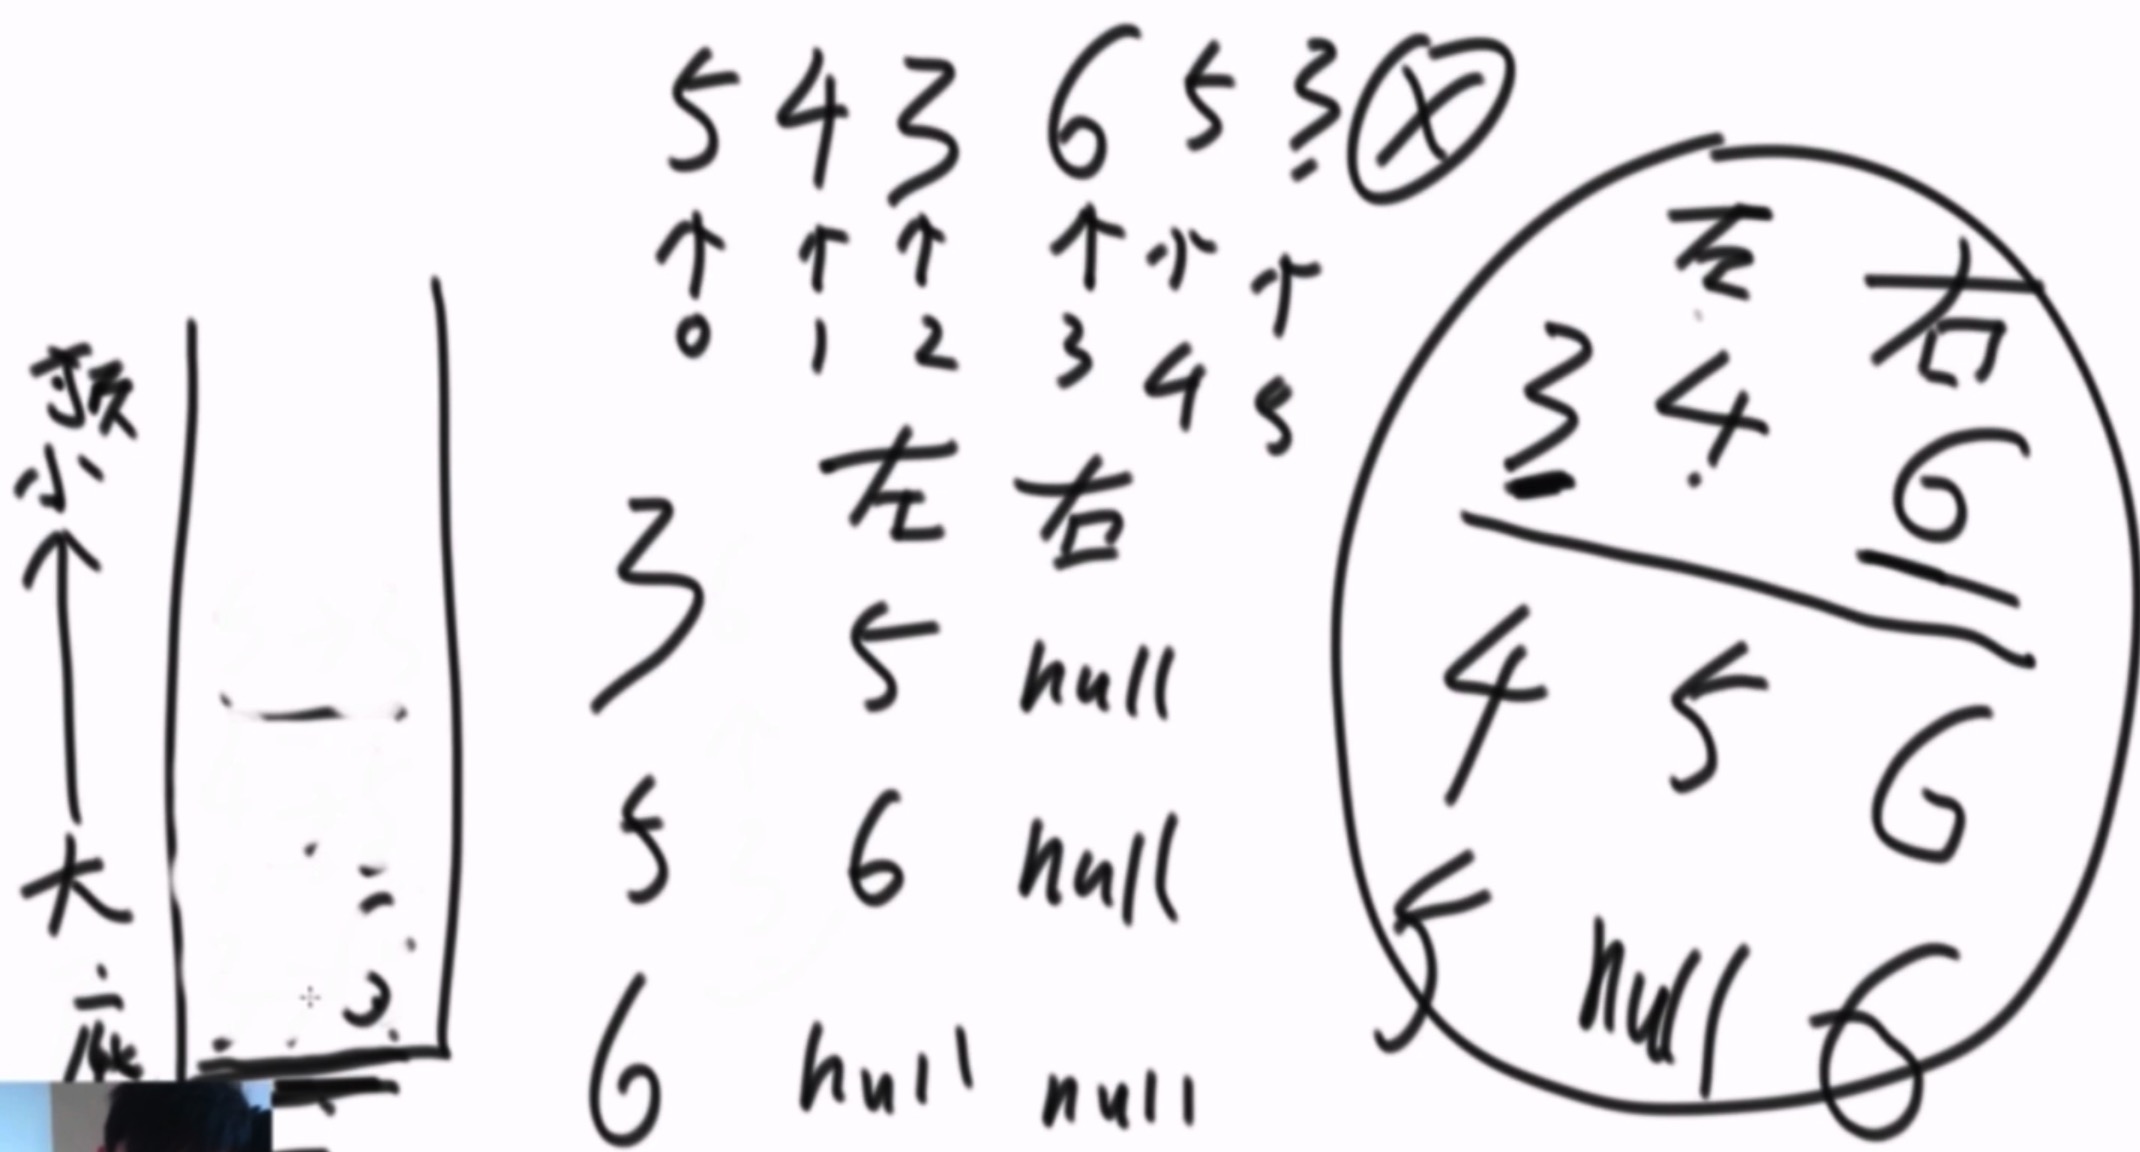 5 4 3 6 5 3 X
0 1 2 3 4 5
左 右
3 5 null
5 6 null
6 null null
左 右
3 4 6
4 5 6
5 null 6
顶
小
大
二